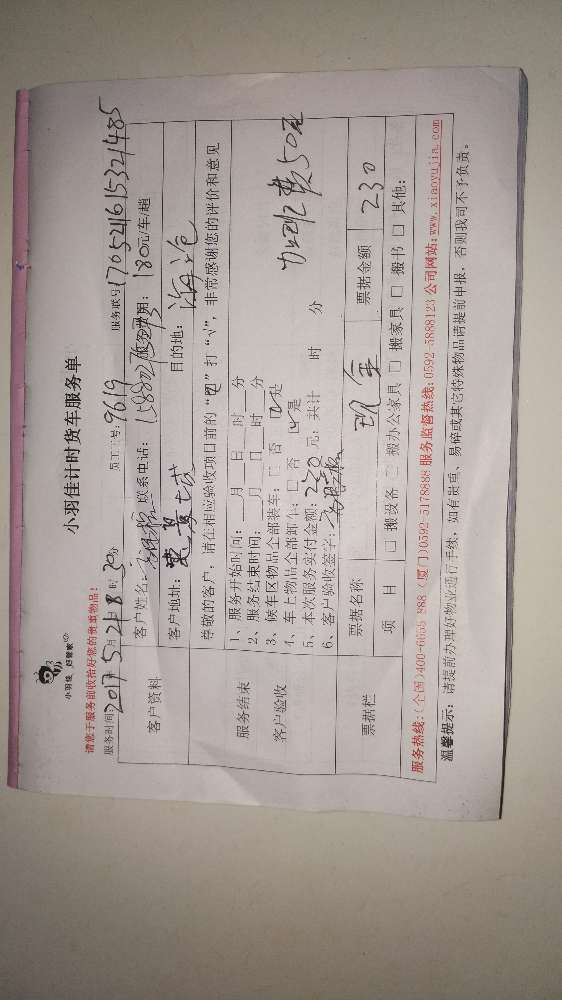 小羽佳 好管家
小羽佳计时货车服务单
请您于服务前收拾好您的贵重物品!
服务时间 2017 5 21 8 时 30分 员工工号: 9619 服务联号 170521615321485
客户资料 客户姓名: 联系电话: 服务费用: 180元/车/趟
客户地址: 目的地: 海沧
尊敬的客户, 请在相应验收项目前的“口”打“√”, 非常感谢您的评价和意见
服务结束 客户验收
1、服务开始时间: 月 日 时 分
2、服务结束时间: 月 日 时 分
3、候车区物品全部装车: □ 否 ☑是
4、车上物品全部卸车: □ 否 ☑是
5、本次服务实付金额: 230 元; 共计 时 分
6、客户验收签字:
加班费50元
票据栏 票据名称 现金 票据金额 230
项 目 □ 搬设备 □ 搬办公家具 □ 搬家具 □ 搬书 □ 其他:
服务热线: (全国)400-6655-988 (厦门)0592-5178888 服务监督热线: 0592-5888123 公司网站: www.xiaoyujia.com
温馨提示: 请提前办理好物业通行手续, 如有贵重、易碎或其它特殊物品请提前申报, 否则我司不予负责。